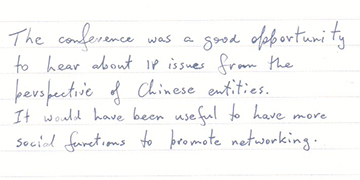 The conference was a good opportunity
to hear about IP issues from the
perspective of Chinese entities.
It would have been useful to have more
social functions to promote networking.